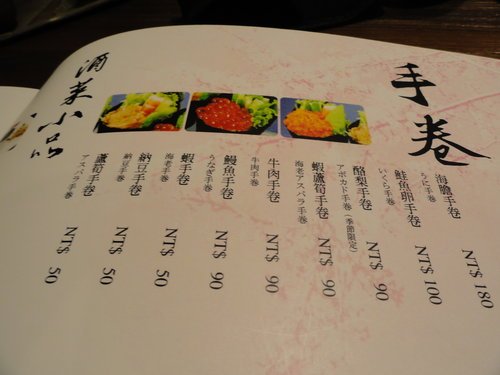 手卷
海膽手卷
うに手卷
NT$ 180
鮭魚卵手卷
いくら手卷
NT$ 100
酪梨手卷
アボカド手卷(季節限定)
NT$ 90
蝦蘆筍手卷
海老アスパラ手卷
NT$ 90
牛肉手卷
牛肉手卷
NT$ 90
鰻魚手卷
うなぎ手卷
NT$ 90
蝦手卷
海老手卷
NT$ 50
納豆手卷
納豆手卷
NT$ 50
蘆筍手卷
アスパラ手卷
NT$ 50
酒菜小品